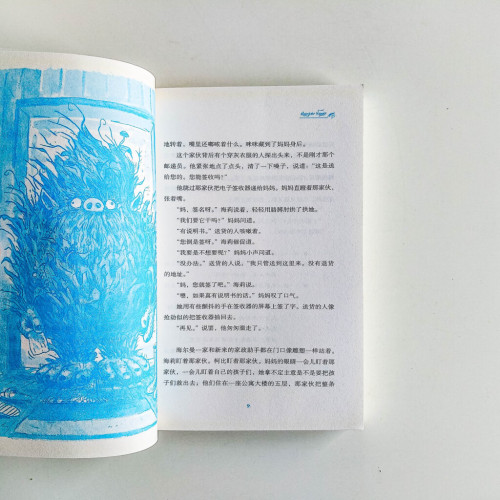 地转着，嘴里还嘟哝着什么。咪咪藏到了妈妈身后。
这个家伙背后有个穿灰衣服的人探出头来，不是刚才那个
邮递员。他紧张地点了点头，清了一下嗓子，说道：“这是送
给您的，您能签收吗？”
他绕过那家伙把电子签收器递给妈妈。妈妈直瞪着那家伙，
张着嘴。
“妈，签名呀。”海莉说着，轻轻用胳膊肘拱了拱她。
“我们要它干吗？”妈妈问道。
“有说明书。”送货的人咳嗽着。
“您倒是签呀。”海莉催促道。
“我要是不想要呢？”妈妈小声问道。
“没办法。”送货的人说，“我只管送到这里来。没有退货
的地址。”
“妈，您就签了吧。”海莉说。
“嗯，如果真有说明书的话。”妈妈叹了口气。
她用有些颤抖的手在签收器的屏幕上签了字，送货的人像
抢劫似的把签收器摘回去。
“再见。”说罢，他匆匆溜走了。
海尔曼一家和新来的家政助手都在门口像雕塑一样站着。
海莉盯着那家伙，柯比盯着那家伙，妈妈的眼睛一会儿盯着那
家伙，一会儿盯着自己的孩子们；她拿不定主意是不是要把孩
子们救出去；他们住在一座公寓大楼的五层，那家伙把整条